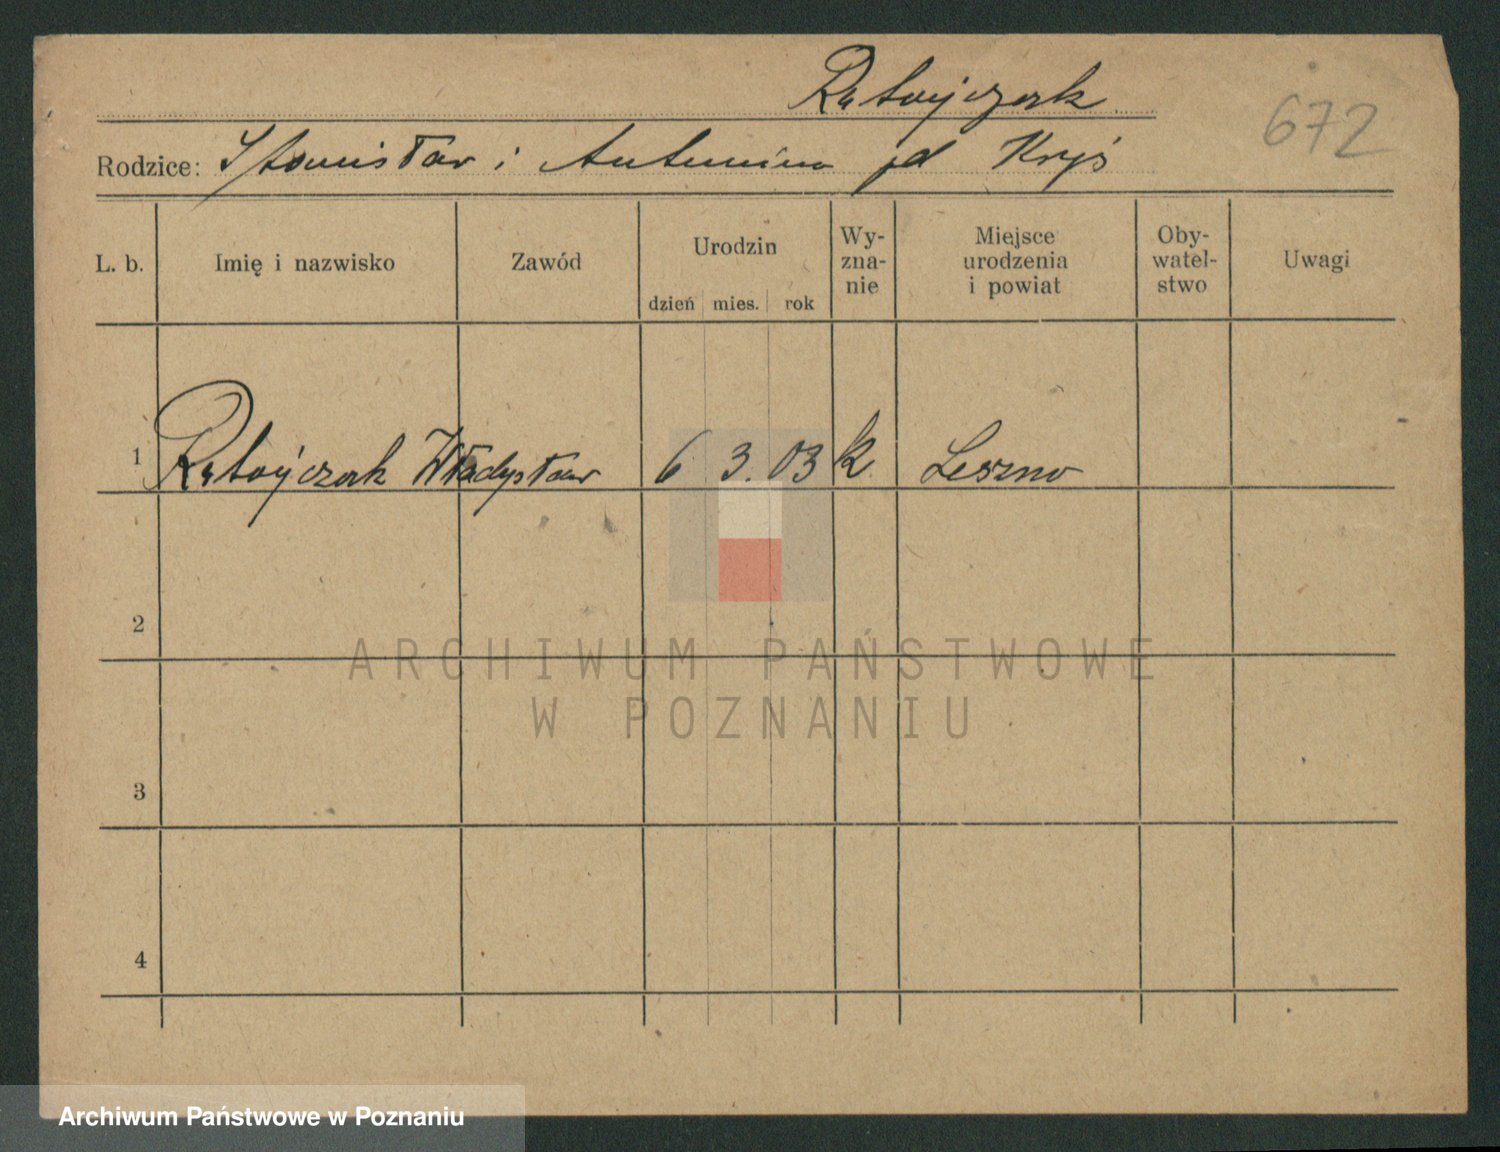 Ratajczak
672
Rodzice: Stanisław i Antonina zd Kryś
L. b. Imię i nazwisko Zawód Urodzin dzień mies. rok Wy-zna-nie Miejsce urodzenia i powiat Oby-watel-stwo Uwagi
1 Ratajczak Władysław 6 3. 03 k Leszno
2
3
4
ARCHIWUM PAŃSTWOWE
W POZNANIU
Archiwum Państwowe w Poznaniu